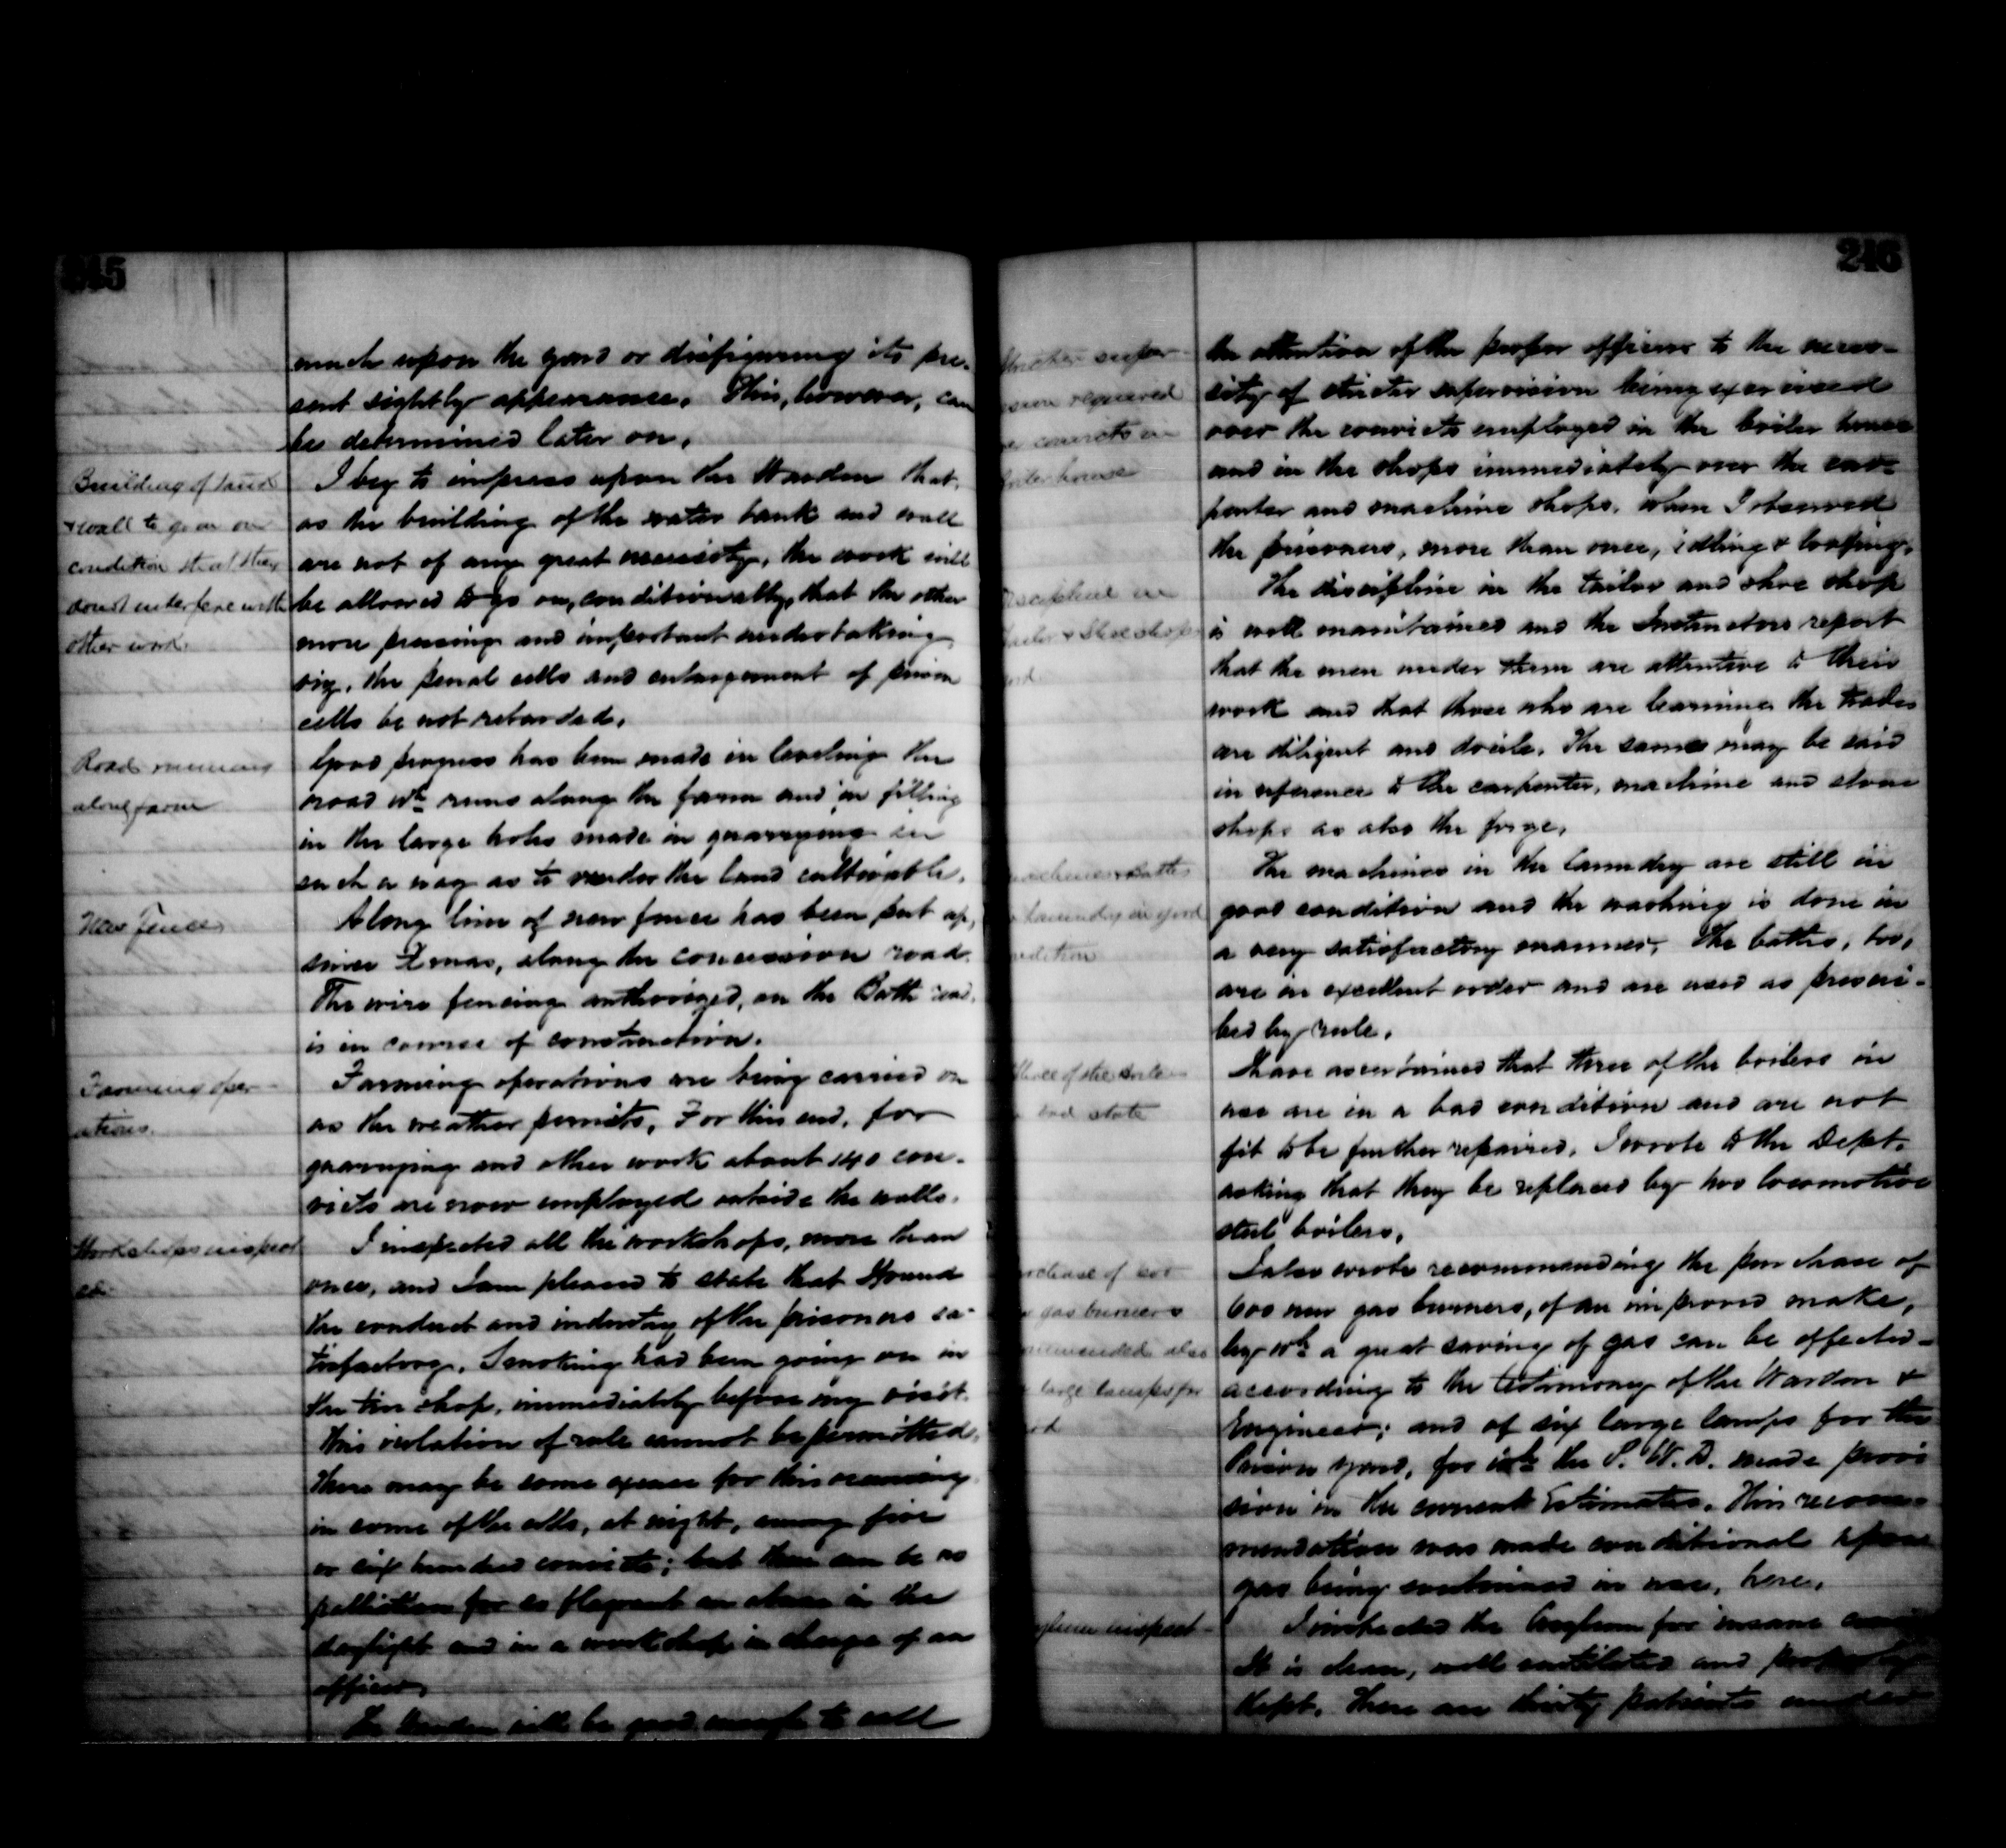 245
much upon the yard or disfiguring its pre-
sent sightly appearance. This, however, can
be determined later on.
Building of bank
& wall to go on on
condition that they
don't interfere with
other work.
I beg to impress upon the Warden that,
as the building of the water bank and wall
are not of any great necessity, the work will
be allowed to go on, conditionally, that the other
more pressing and important undertaking
viz, the penal cells and enlargement of prison
cells be not retarded.
Road running
along farm
Good progress has been made in leveling the
road wh runs along the farm and in filling
in the large holes made in quarrying in
such a way as to render the land cultivable.
New Fence
A long line of new fence has been put up,
since Xmas, along the concession road.
The wire fencing authorized, on the Bath road,
is in course of construction.
Farming oper-
ations.
Farming operations are being carried on
as the weather permits. For this end, for
quarrying and other work about 140 con-
victs are now employed outside the walls.
Workshops inspect
ed.
I inspected all the workshops, more than
once, and I am pleased to state that I found
the conduct and industry of the prisoners sa-
tisfactory. Smoking had been going on in
the tin shop, immediately before my visit.
This violation of rule cannot be permitted.
There may be some excuse for this occurring
in some of the cells, at night, among five
or six hundred convicts; but there can be no
palliation for so flagrant an abuse in the
daylight and in a workshop in charge of an
officer.
The Warden will be good enough to call
246
Stricter super-
vision required
convicts in
boiler house
the attention of the proper officers to the neces-
sity of stricter supervision being exercised
over the convicts employed in the boiler house
and in the shops immediately over the car-
penter and machine shops, when I observed
the prisoners, more than once, idling & loafing.
Discipline in
Tailor & Shoe shops
The discipline in the tailor and shoe shop
is well maintained and the Instructors report
that the men under them are attentive to their
work and that those who are learning the trades
are diligent and docile. The same may be said
in reference to the carpenter, machine and stone
shops as also the forge.
machines & Baths
laundry in good
condition
The machines in the laundry are still in
good condition and the washing is done in
a very satisfactory manner. The baths, too,
are in excellent order and are used as prescri-
bed by rule.
Three of the boilers
bad state
I have ascertained that three of the boilers in
use are in a bad condition and are not
fit to be further repaired. I wrote to the Dept.
asking that they be replaced by two locomotive
steel boilers.
Purchase of 600
gas burners
recommended also
large lamps for
I also wrote recommending the purchase of
600 new gas burners, of an improved make,
by wh a great saving of gas can be effected -
according to the testimony of the Warden &
Engineer; and of six large lamps for the
Prison yard, for wh the P. W. D. made provi
sion in the current Estimates. This recom-
mendation was made conditional upon
gas being continued in use, here.
Asylum inspect-
I inspected the Asylum for insane
It is clean, well ventilated and properly
kept. There are thirty patients under